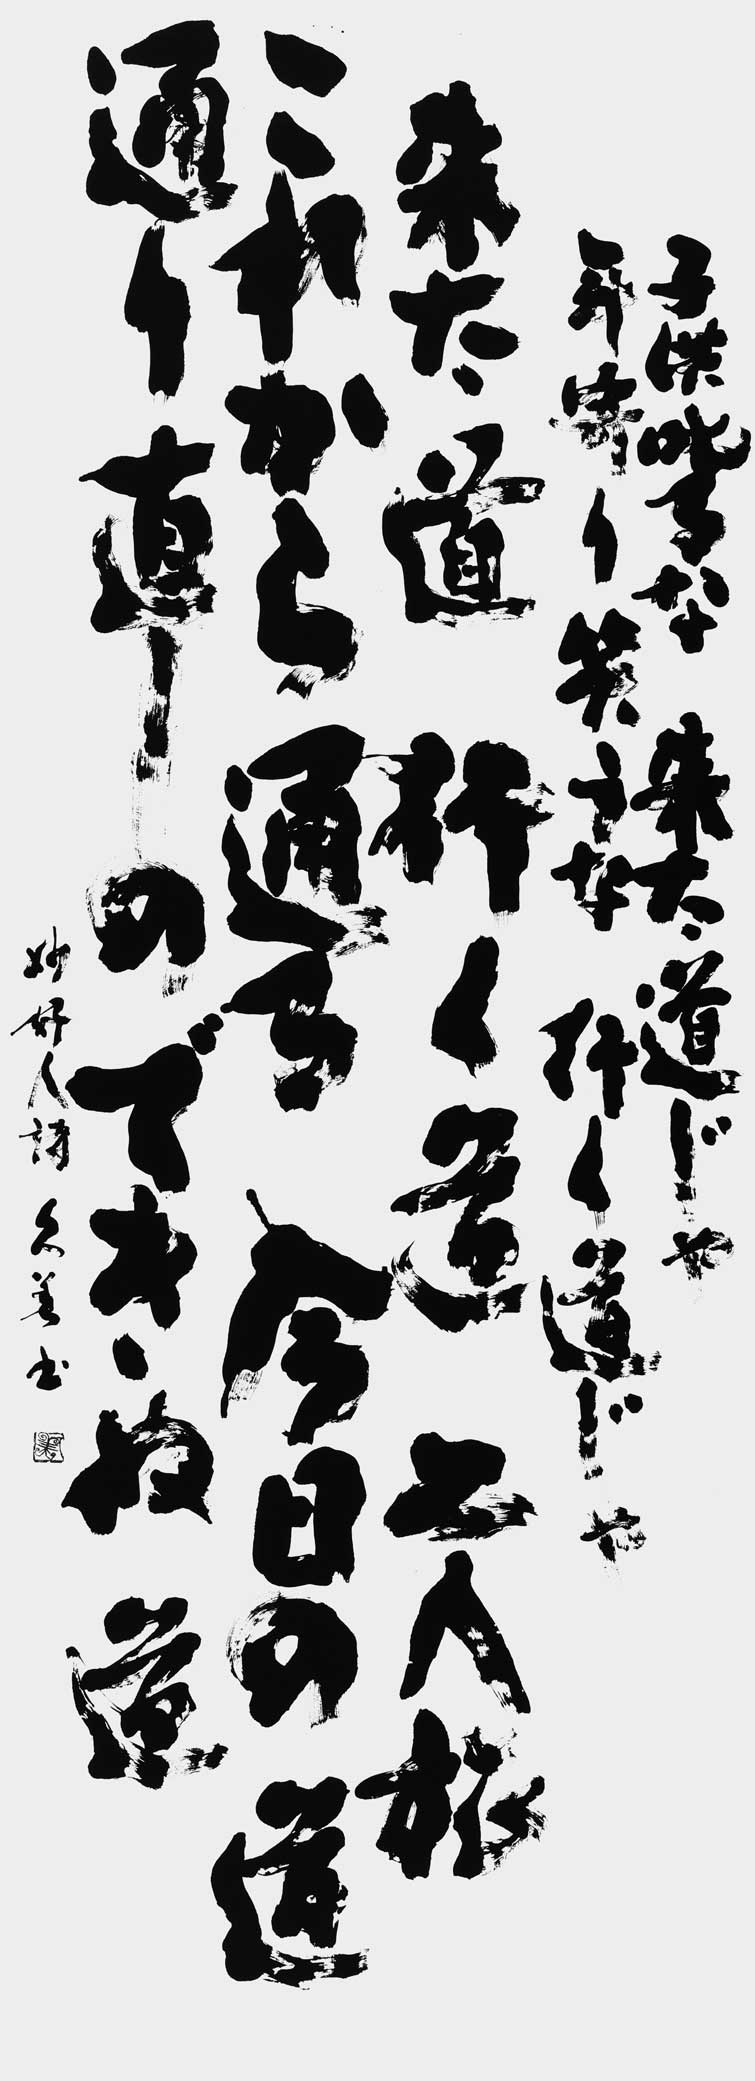 子供叱るな 来た道じゃ
年寄り笑うな 行く道じゃ
来た道 行く道 二人旅
これから通る 今日の道
通り直しのできぬ 道
妙好人詩 書